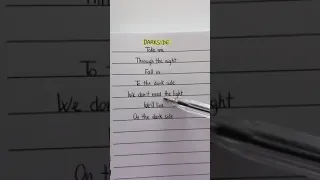 DARKSIDE
Take me
Through the night
Fall in
To the dark side
We don't need the light
We'll live
On the dark side
We don